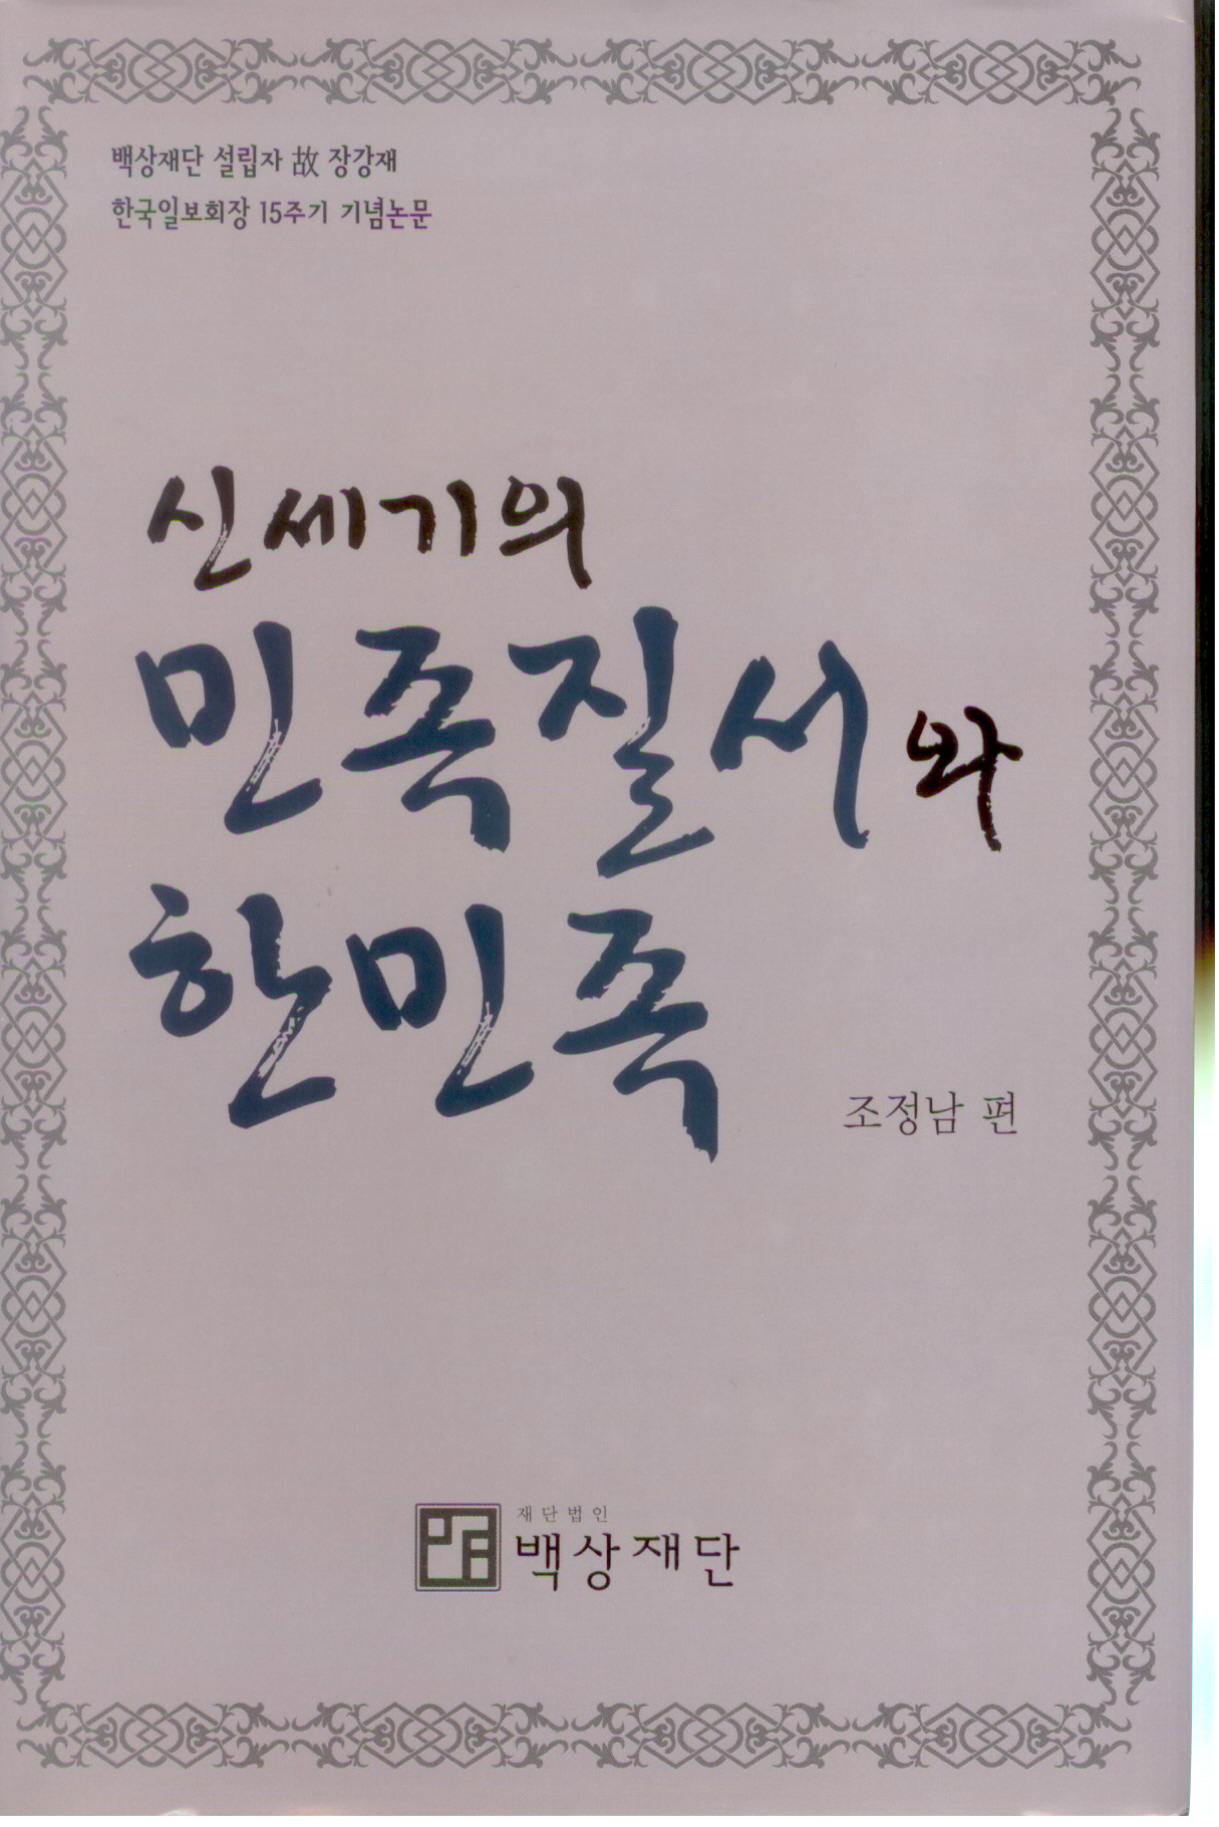 백상재단 설립자 故 장강재
한국일보회장 15주기 기념논문
신세기의
민족질서와
한민족
조정남 편
재단법인
백상재단